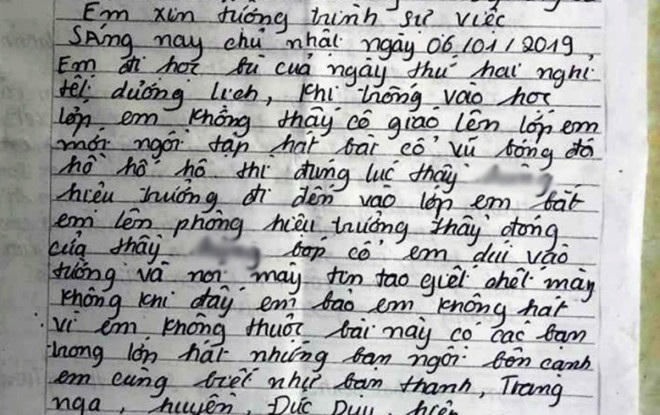 Em xin tường trình sự việc
SÁng nay chủ nhật ngày 06/01/2019,
Em đi học bù của ngày thứ hai nghỉ
tết dương lịch, khi trống vào học
lớp em không thấy cô giáo lên lớp em
mới ngồi tập hát bài cổ vũ bóng đá
hồ hố hô thì đúng lúc thầy
hiệu trưởng đi đến vào lớp em bắt
em lên phòng hiệu trưởng thầy đóng
cửa thầy bóp cổ em dúi vào
tường và nói mày tin tao giết chết mày
không khi đấy em bảo em không hát
vì em không thuộc bài này có các bạn
trong lớp hát những bạn ngồi bên cạnh
em cũng biết như bạn thanh, Trang
nga, huyền, Đức Duy, hiền